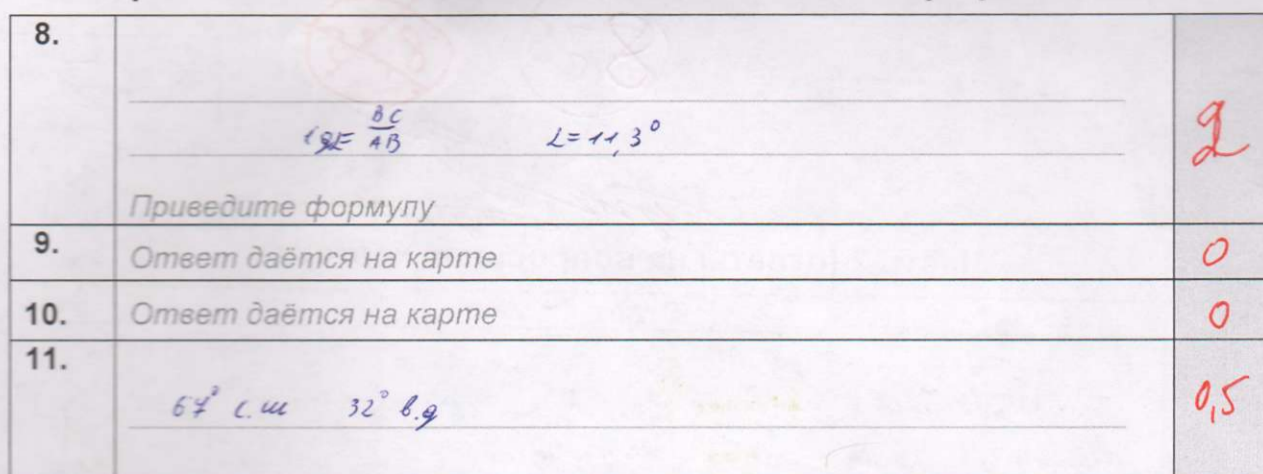 8.
tgL = BC/AB L = 11,3° 2
Приведите формулу
9. Ответ даётся на карте 0
10. Ответ даётся на карте 0
11.
67° с.ш 32° в.д 0,5